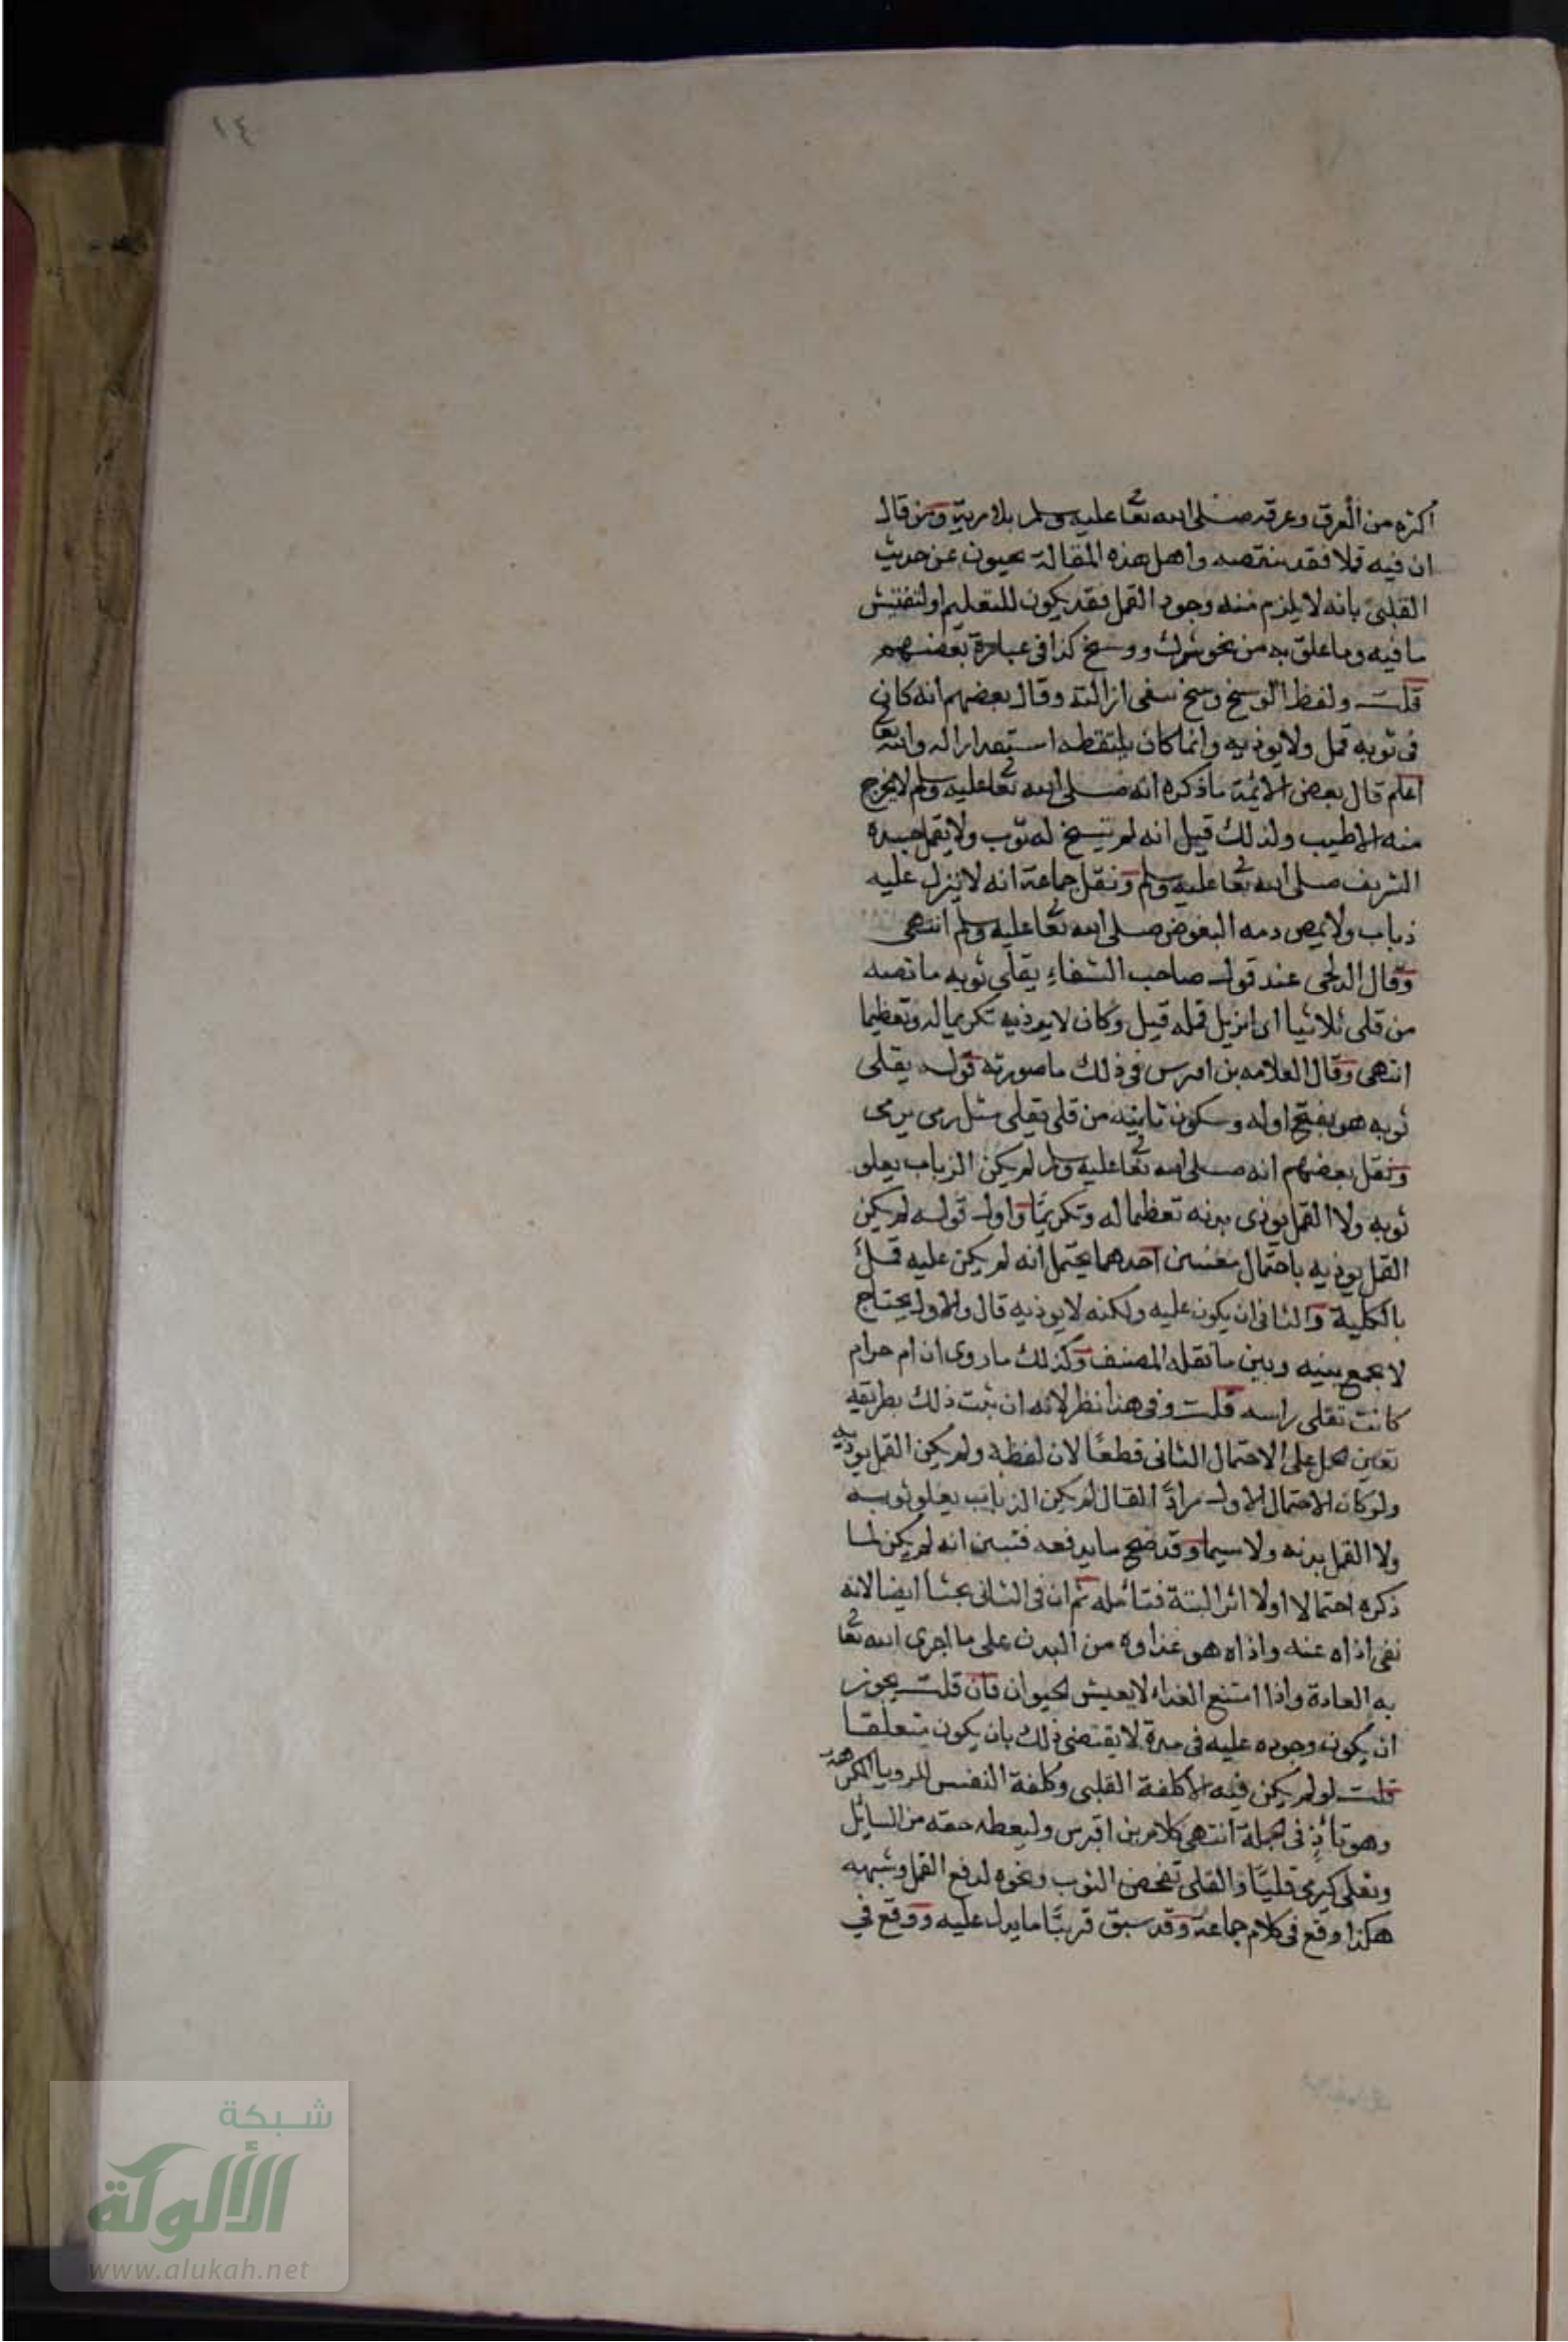 ١٤
اكثره من العرق وعرقه صلى الله تعا عليه وسلم بلا مرية ومن قال
ان فيه قملا فقد ينقصه واهل هذه المقالة يجيبون عن حديث
القلي بانه لا يلزم منه وجود القمل فقد يكون للتعليم او لتفتيش
ما فيه وما علق به من نحو شوك ووسخ كذا في عبارة بعضهم
قلت ولفظ الوسخ وسخ ينبغي ازالته وقال بعضهم انه كان
في ثوبه قمل ولا يوذيه وانما كان يلتقطه استقذارا له والله تعا
اعلم قال بعض الائمة ما ذكره انه صلى الله تعا عليه وسلم لا يخرج
منه الا طيب ولذلك قيل انه لم يتسخ له ثوب ولا يقمل جسده
الشريف صلى الله تعا عليه وسلم ونقل جماعة انه لا ينزل عليه
ذباب ولا يمص دمه البعوض صلى الله تعا عليه وسلم انتهى
وقال الدلجي عند قول صاحب الشفاء يقلي ثوبه ما نصه
من قلى ثلاثيا اى ازيل قمله قيل وكان لا يوذيه تكريما له وتعظيما
انتهى وقال العلامه بن اقبرس في ذلك ما صورته قوله يقلى
ثوبه هو بفتح اوله وسكون ثانيه من قلى يقلى مثل رمى يرمى
ونقل بعضهم انه صلى الله تعا عليه وسلم لم يكن الذباب يعلو
ثوبه ولا القمل يوذى بدنه تعظيما له وتكريمًا واول قوله لم يكن
القمل يوذيه باحتمال معنيين احدهما يحتمل انه لم يكن عليه قمل
بالكلية والثاني ان يكون عليه ولكنه لا يوذيه قال والاول يحتاج
لا يجمع بينه وبين ما نقله المصنف وكذلك ما روى ان ام حرام
كانت تقلى راسه قلت وفي هذا نظر لانه ان ثبت ذلك بطريقه
تعين حمل على الاحتمال الثاني قطعًا لان لفظه ولم يكن القمل يوذيه
ولو كان الاحتمال الاول مرادًا لقال لم يكن الذباب يعلو ثوبه
ولا القمل بدنه ولا سيما وقد صح ما يدفعه فتبين انه لم يكن لما
ذكره احتمالا اولا اثر البتة فتامله ثم ان في الثاني بحثا ايضا لانه
نفى اذاه عنه واذاه هو غذاوه من البدن على ما اجرى الله تعا
به العادة واذا امتنع الغذاء لا يعيش الحيوان فان قلت يجوز
ان يكون وجوده عليه في مدة لا يقتضي ذلك بان يكون متعلقا
قلت لو لم يكن فيه الا كلفة القلي وكلفة النفس للرويا المكرهة
وهو تأذٍ في الجملة انتهى كلام بن اقبرس وليعطه حقه من السايل
وتقلى كيرمى قليًا والقلي تفحص الثوب ونحوه لدفع القمل وشبهه
هكذا وقع في كلام جماعة وقد سبق قريبًا ما يدل عليه ووقع في
شبكة
الألوكة
www.alukah.net